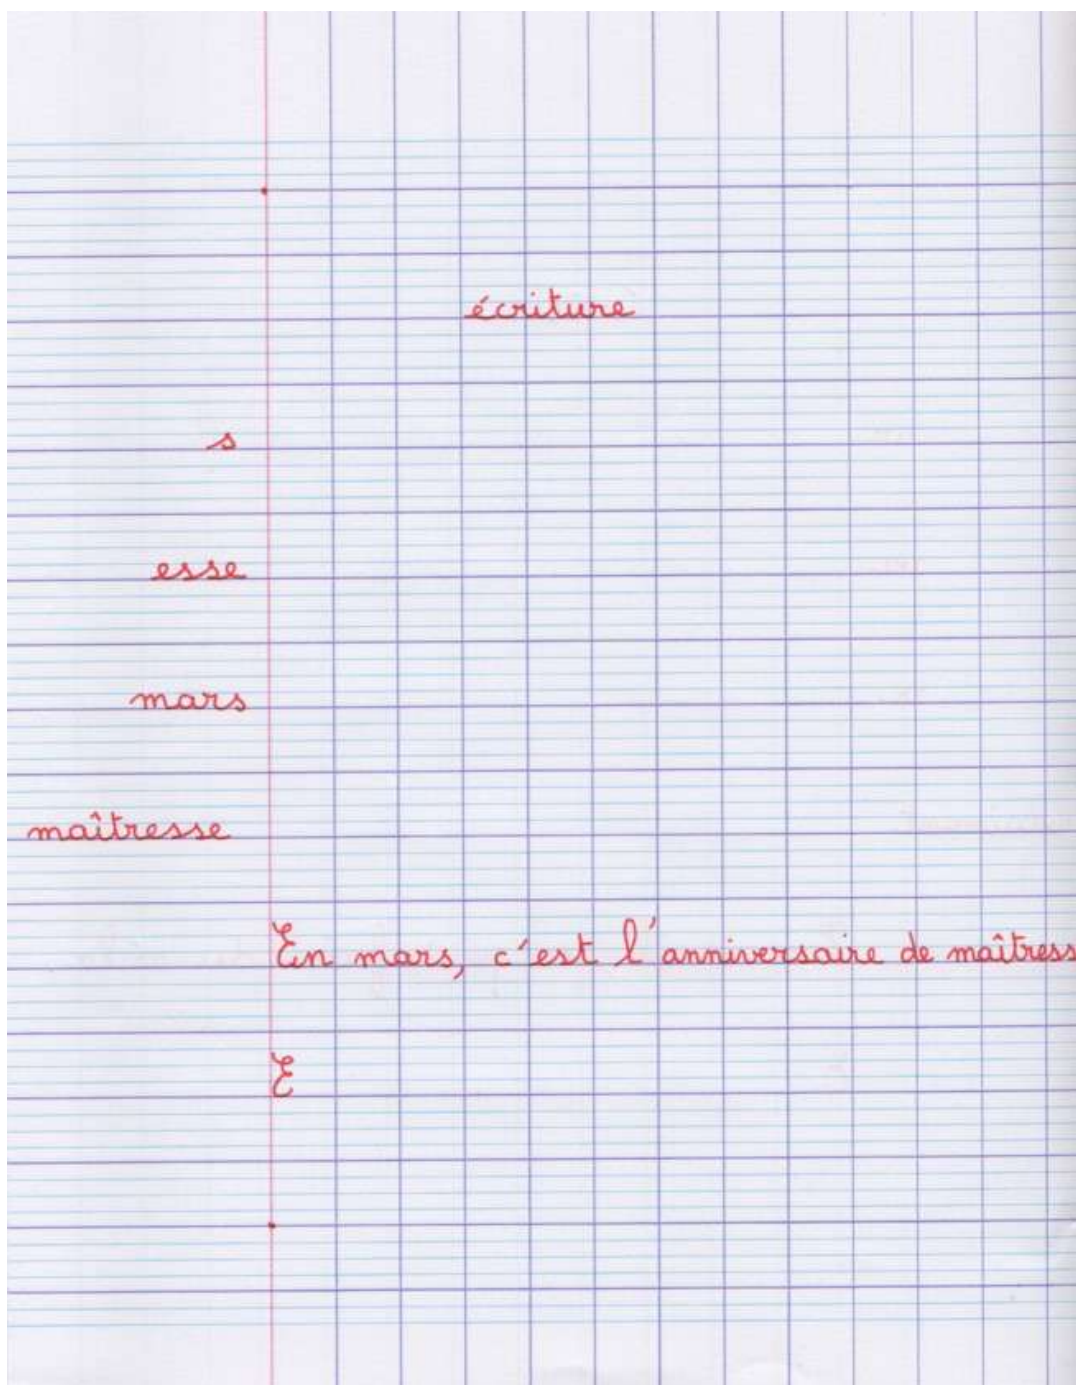 écriture
s
esse
mars
maîtresse
En mars, c'est l'anniversaire de maîtress
E